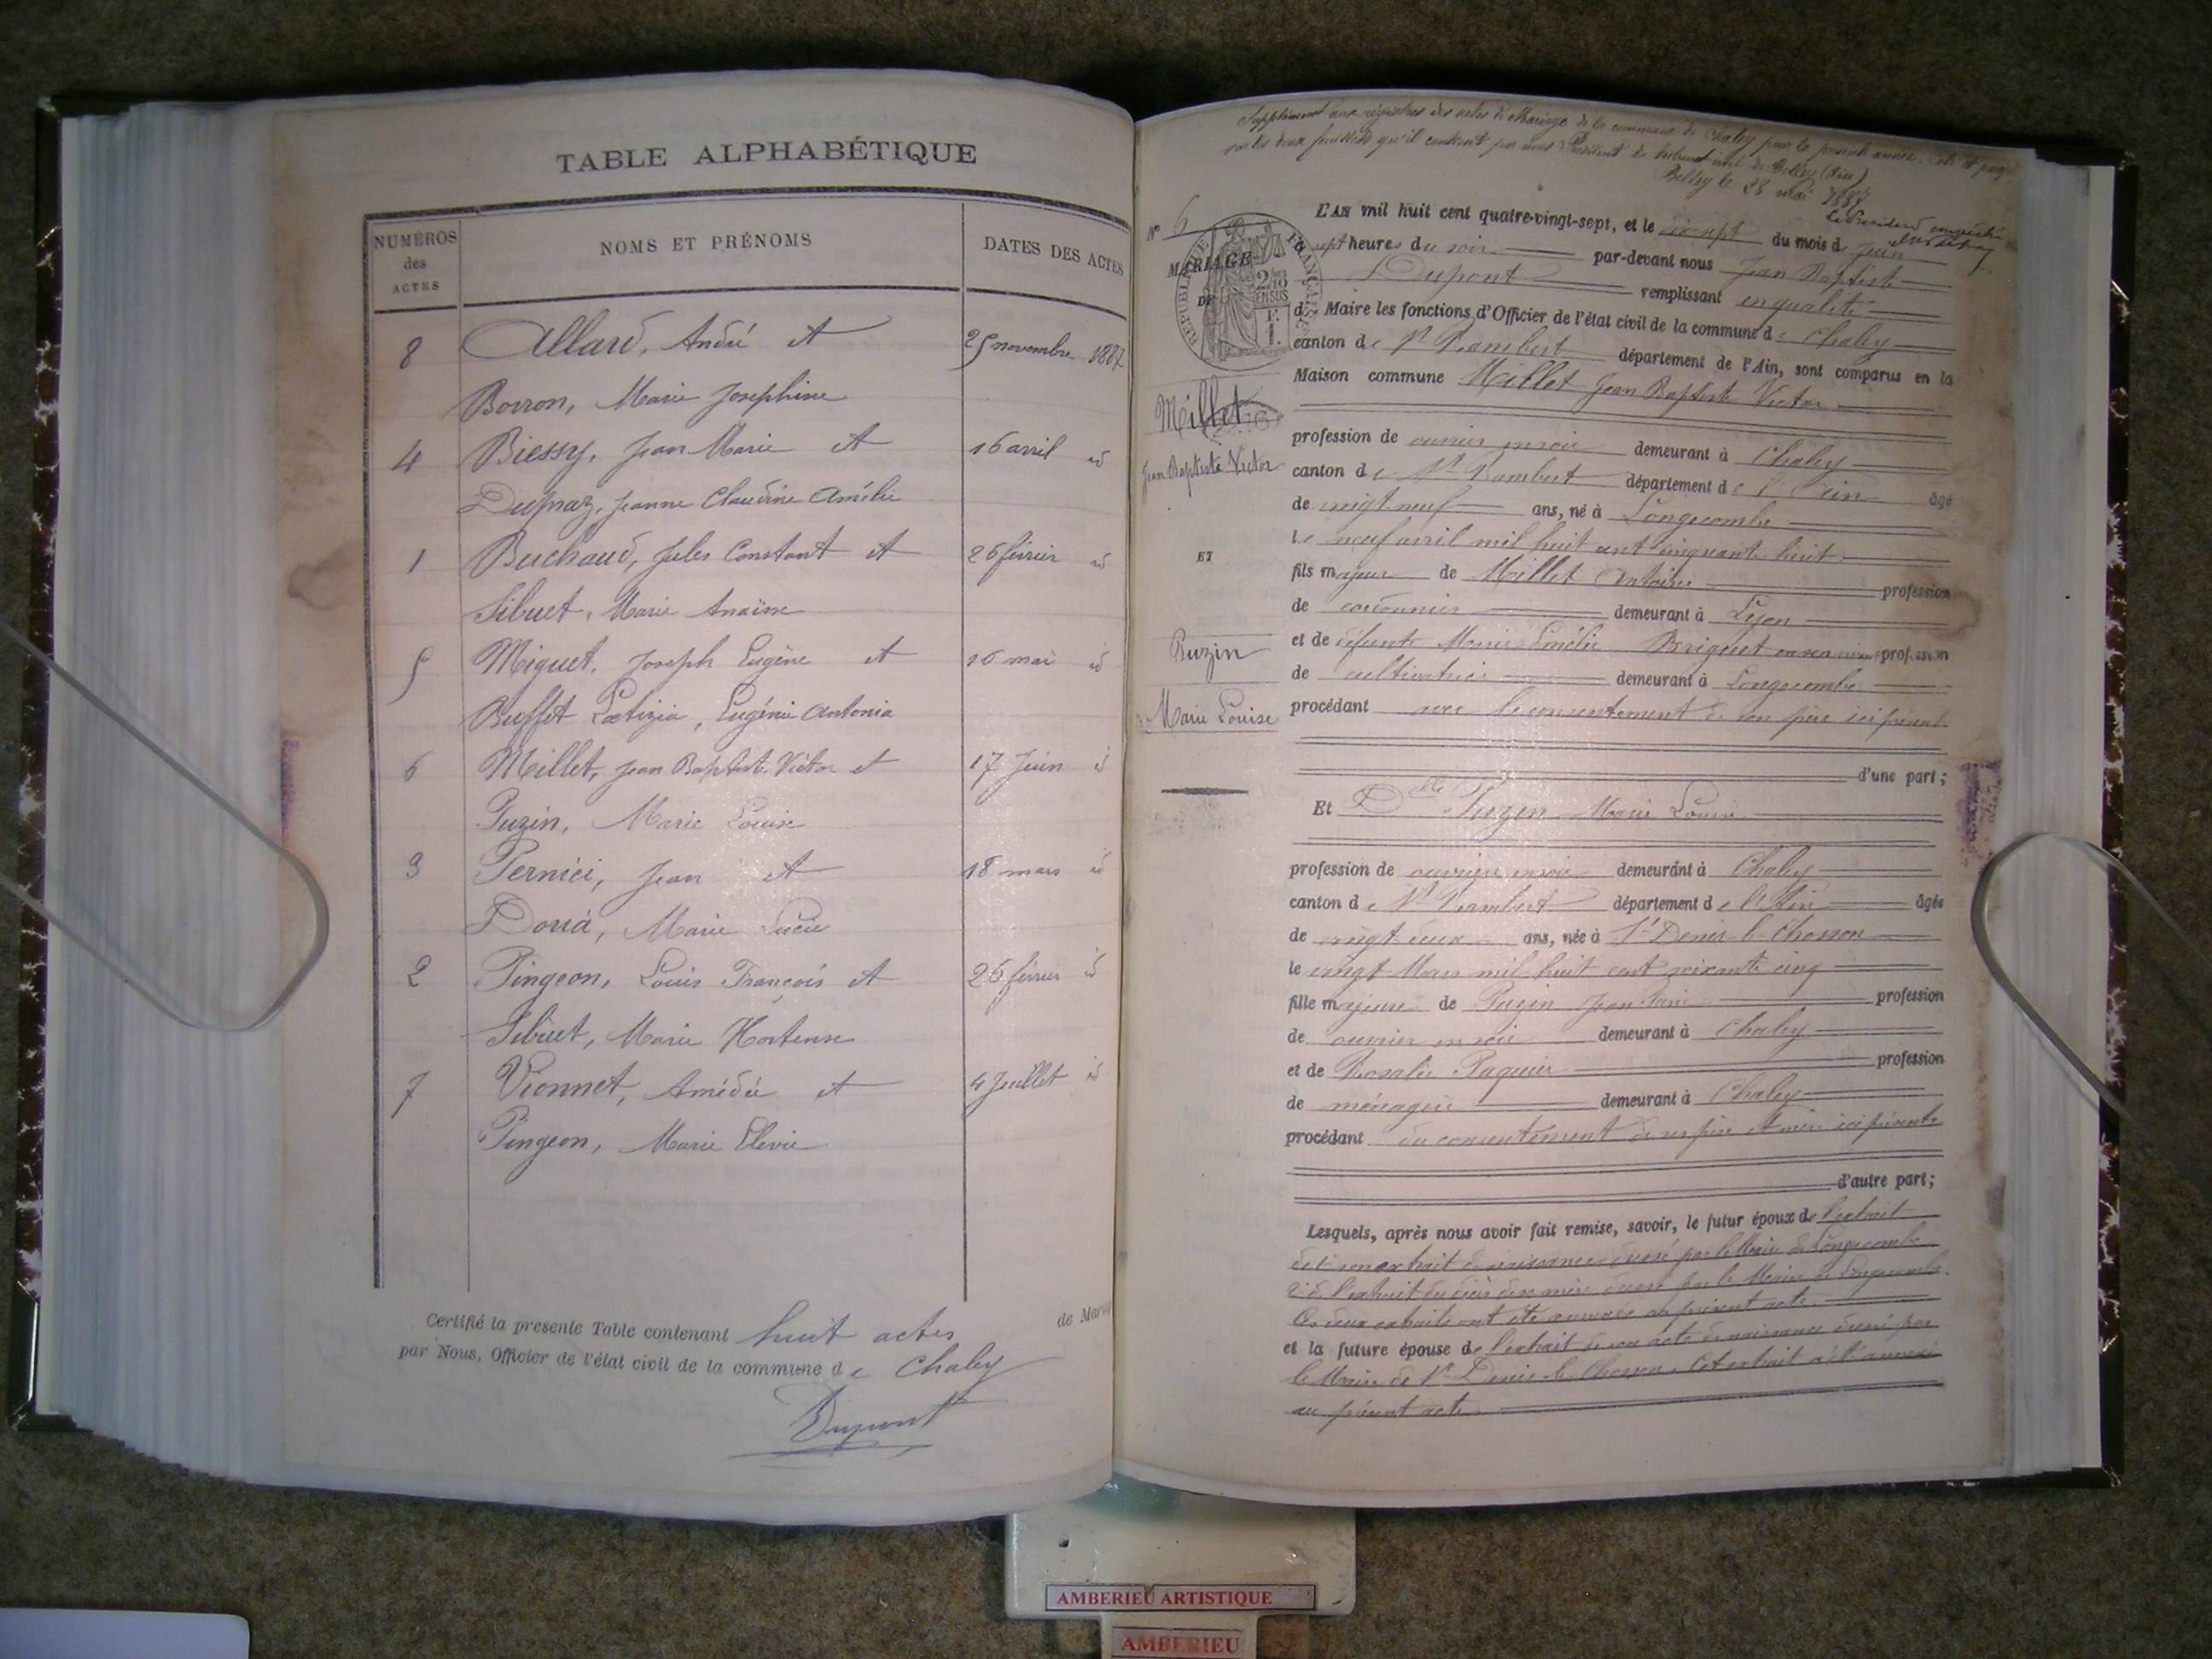 TABLE ALPHABÉTIQUE
NUMÉROS des ACTES
NOMS ET PRÉNOMS
DATES DES ACTES
8 Allard, André et 25 novembre 1887
Borron, Marie Josephine
4 Biessy, Jean Marie et 16 avril id
Dupraz, Jeanne Claudine Amélie
1 Buchaud, Jules Constant et 26 février id
Sibuet, Marie Anaïse
5 Miguet, Joseph Eugène et 16 mai id
Buffet Lætizia, Eugénie Antonia
6 Millet, Jean Baptiste Victor et 17 Juin id
Puzin, Marie Louise
3 Pernici, Jean et 18 mars id
Marie Lucie
2 Pingeon, Louis François et 26 février id
Sibuet, Marie Hortense
7 Vionnet, Amédée et 4 Juillet id
Pingeon, Marie Elevie
Certifié la présente Table contenant huit actes de Mariage
par Nous, Officier de l'état civil de la commune de Chaley
Dupont
Supplément aux registres des actes de Mariage de la commune de Chaley pour la présente année. Coté et paraphé
sur les deux feuillets qu'il contient par nous Président du tribunal civil de Belley (Ain)
Belley le 28 mai
Le Président
N° 6
MARIAGE
DE
RÉPUBLIQUE FRANÇAISE
Millet
Jean Baptiste Victor
ET
Puzin
Marie Louise
L'AN mil huit cent quatre-vingt-sept, et le dix sept du mois de Juin
sept heures du soir par-devant nous Jean Baptiste
Dupont remplissant en qualité
de Maire les fonctions d'Officier de l'état civil de la commune de Chaley
canton de St Rambert département de l'Ain, sont comparus en la
Maison commune Millet Jean Baptiste Victor
profession de ouvrier en soie demeurant à Chaley
canton de St Rambert département de l'Ain âgé
de vingt neuf ans, né à Longecombe
le neuf avril mil huit cent cinquante huit
fils majeur de Millet Antoine profession
de cordonnier demeurant à Lyon
et de défunte Marie Emélie Briguet en son vivant profession
de cultivatrice demeurant à Longecombe
procédant avec le consentement de son père ici présent
d'une part;
Et Dlle Puzin Marie Louise
profession de ouvrière en soie demeurant à Chaley
canton de St Rambert département de l'Ain âgée
de vingt deux ans, née à St Denis-le-Chosson
le vingt Mars mil huit cent soixante cinq
fille majeure de Puzin Jean profession
de ouvrier en soie demeurant à Chaley
et de Rosalie Paquier profession
de ménagère demeurant à Chaley
procédant du consentement de ses père et mère ici présents
d'autre part;
Lesquels, après nous avoir fait remise, savoir, le futur époux de l'extrait
de son extrait de naissance dressé par le Maire de Longecombe
2° de l'extrait du décès de sa mère dressé par le Maire de Longecombe.
Ces deux extraits ont été annexés au présent acte.
et la future épouse de l'extrait de son acte de naissance dressé par
le Maire de St Denis-le-Chosson. Cet extrait a été annexé
au présent acte.
AMBERIEU ARTISTIQUE
AMBERIEU